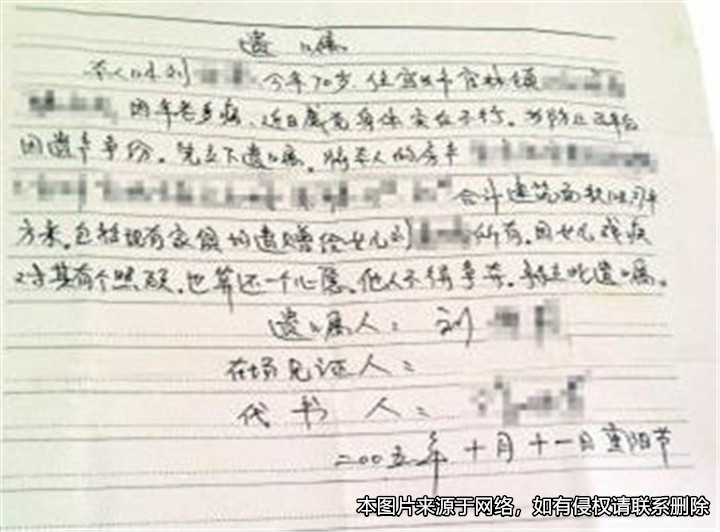 遗嘱
本人姓刘 今年70岁.住宜兴市官林镇
因年老多病、近日感觉身体实在不行。为防止百年后
因遗产争纷。先立下遗嘱。将本人的房产
合计建筑面积
方米。包括现有家俱均遗赠给女儿刘 所有。因女儿残疾
对其有个照顾。也算还一个心愿。他人不得争夺。特立此遗嘱。
遗嘱人：刘
在场见证人：
代书人：
二00五年十月十一日重阳节
本图片来源于网络，如有侵权请联系删除